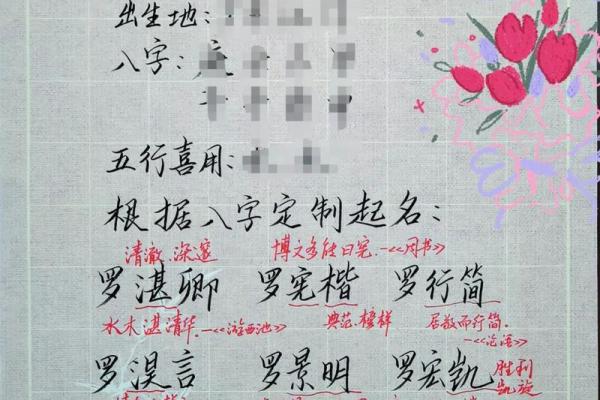 出生地:
八字:
五行喜用:
根据八字定制起名:
清澈.深邃 博文多能曰宪.-<<周书>>
罗湛卿 罗宪楷 罗行简
水木湛清华.-<<游西池>> 典范.榜样 居敬而行简.
-<<论语>>
罗淏言 罗景明 罗宏凯 胜利
凯旋